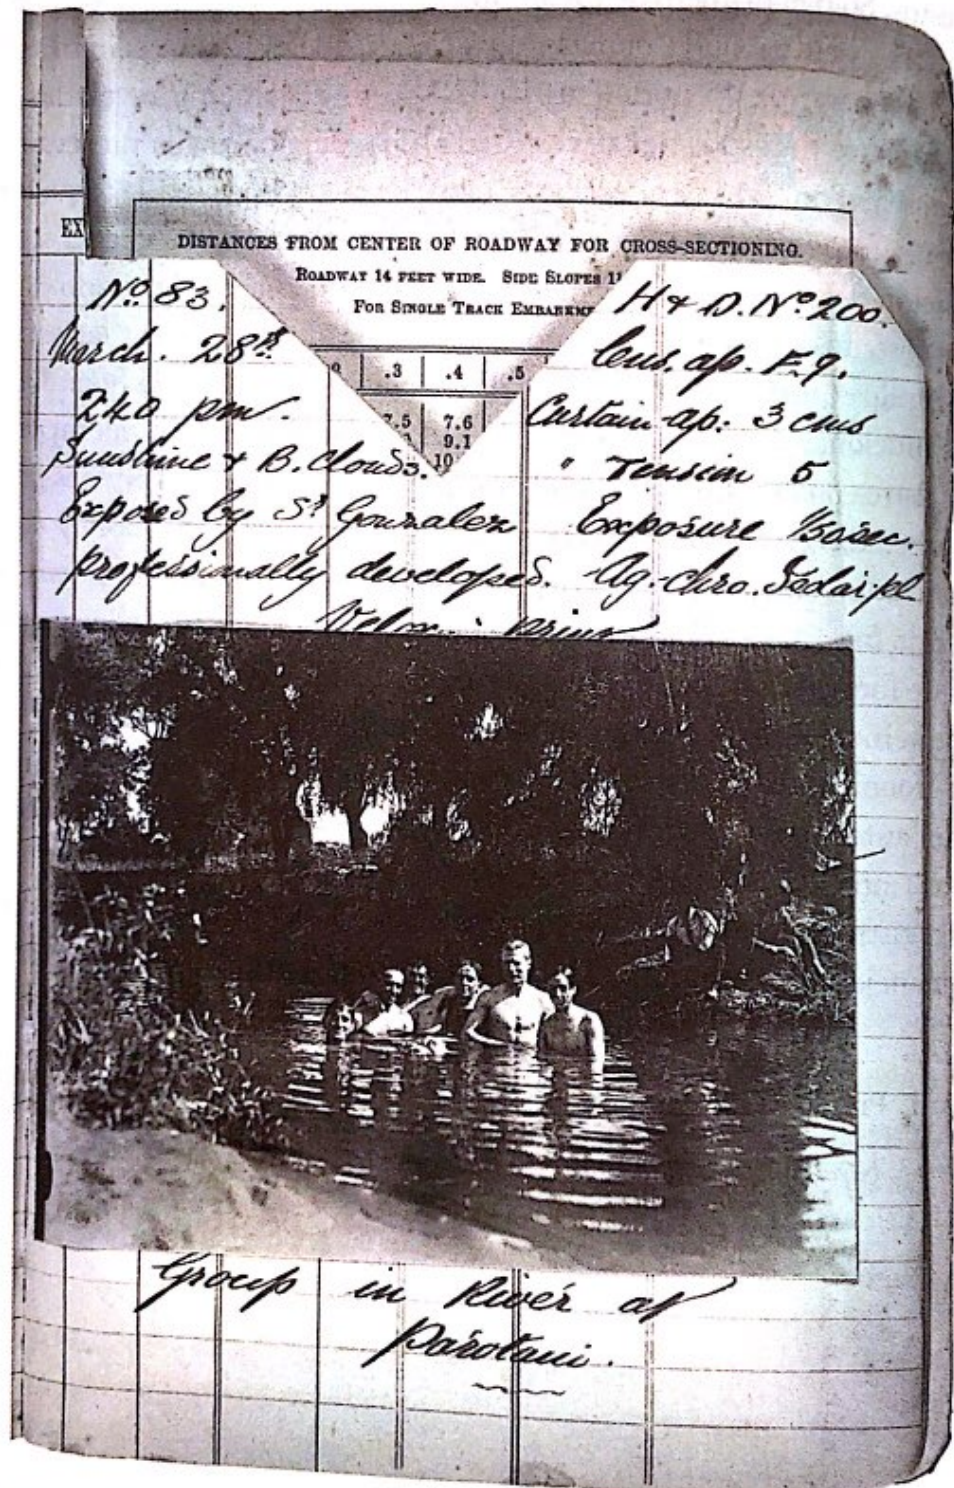 EX
DISTANCES FROM CENTER OF ROADWAY FOR CROSS-SECTIONING.
ROADWAY 14 FEET WIDE. SIDE SLOPES
FOR SINGLE TRACK
.3 .4 .5
7.6
9.1
10
No. 83.
March. 28th.
240 pm.
Sunshine & B. Clouds.
Exposed by Sr Gonzalez
professionally developed.
H & D. No. 200.
Lens. ap. F.9.
Curtain ap: 3 cms
" Tension 5
Exposure 1/50 sec.
Group in River at
Parotani.